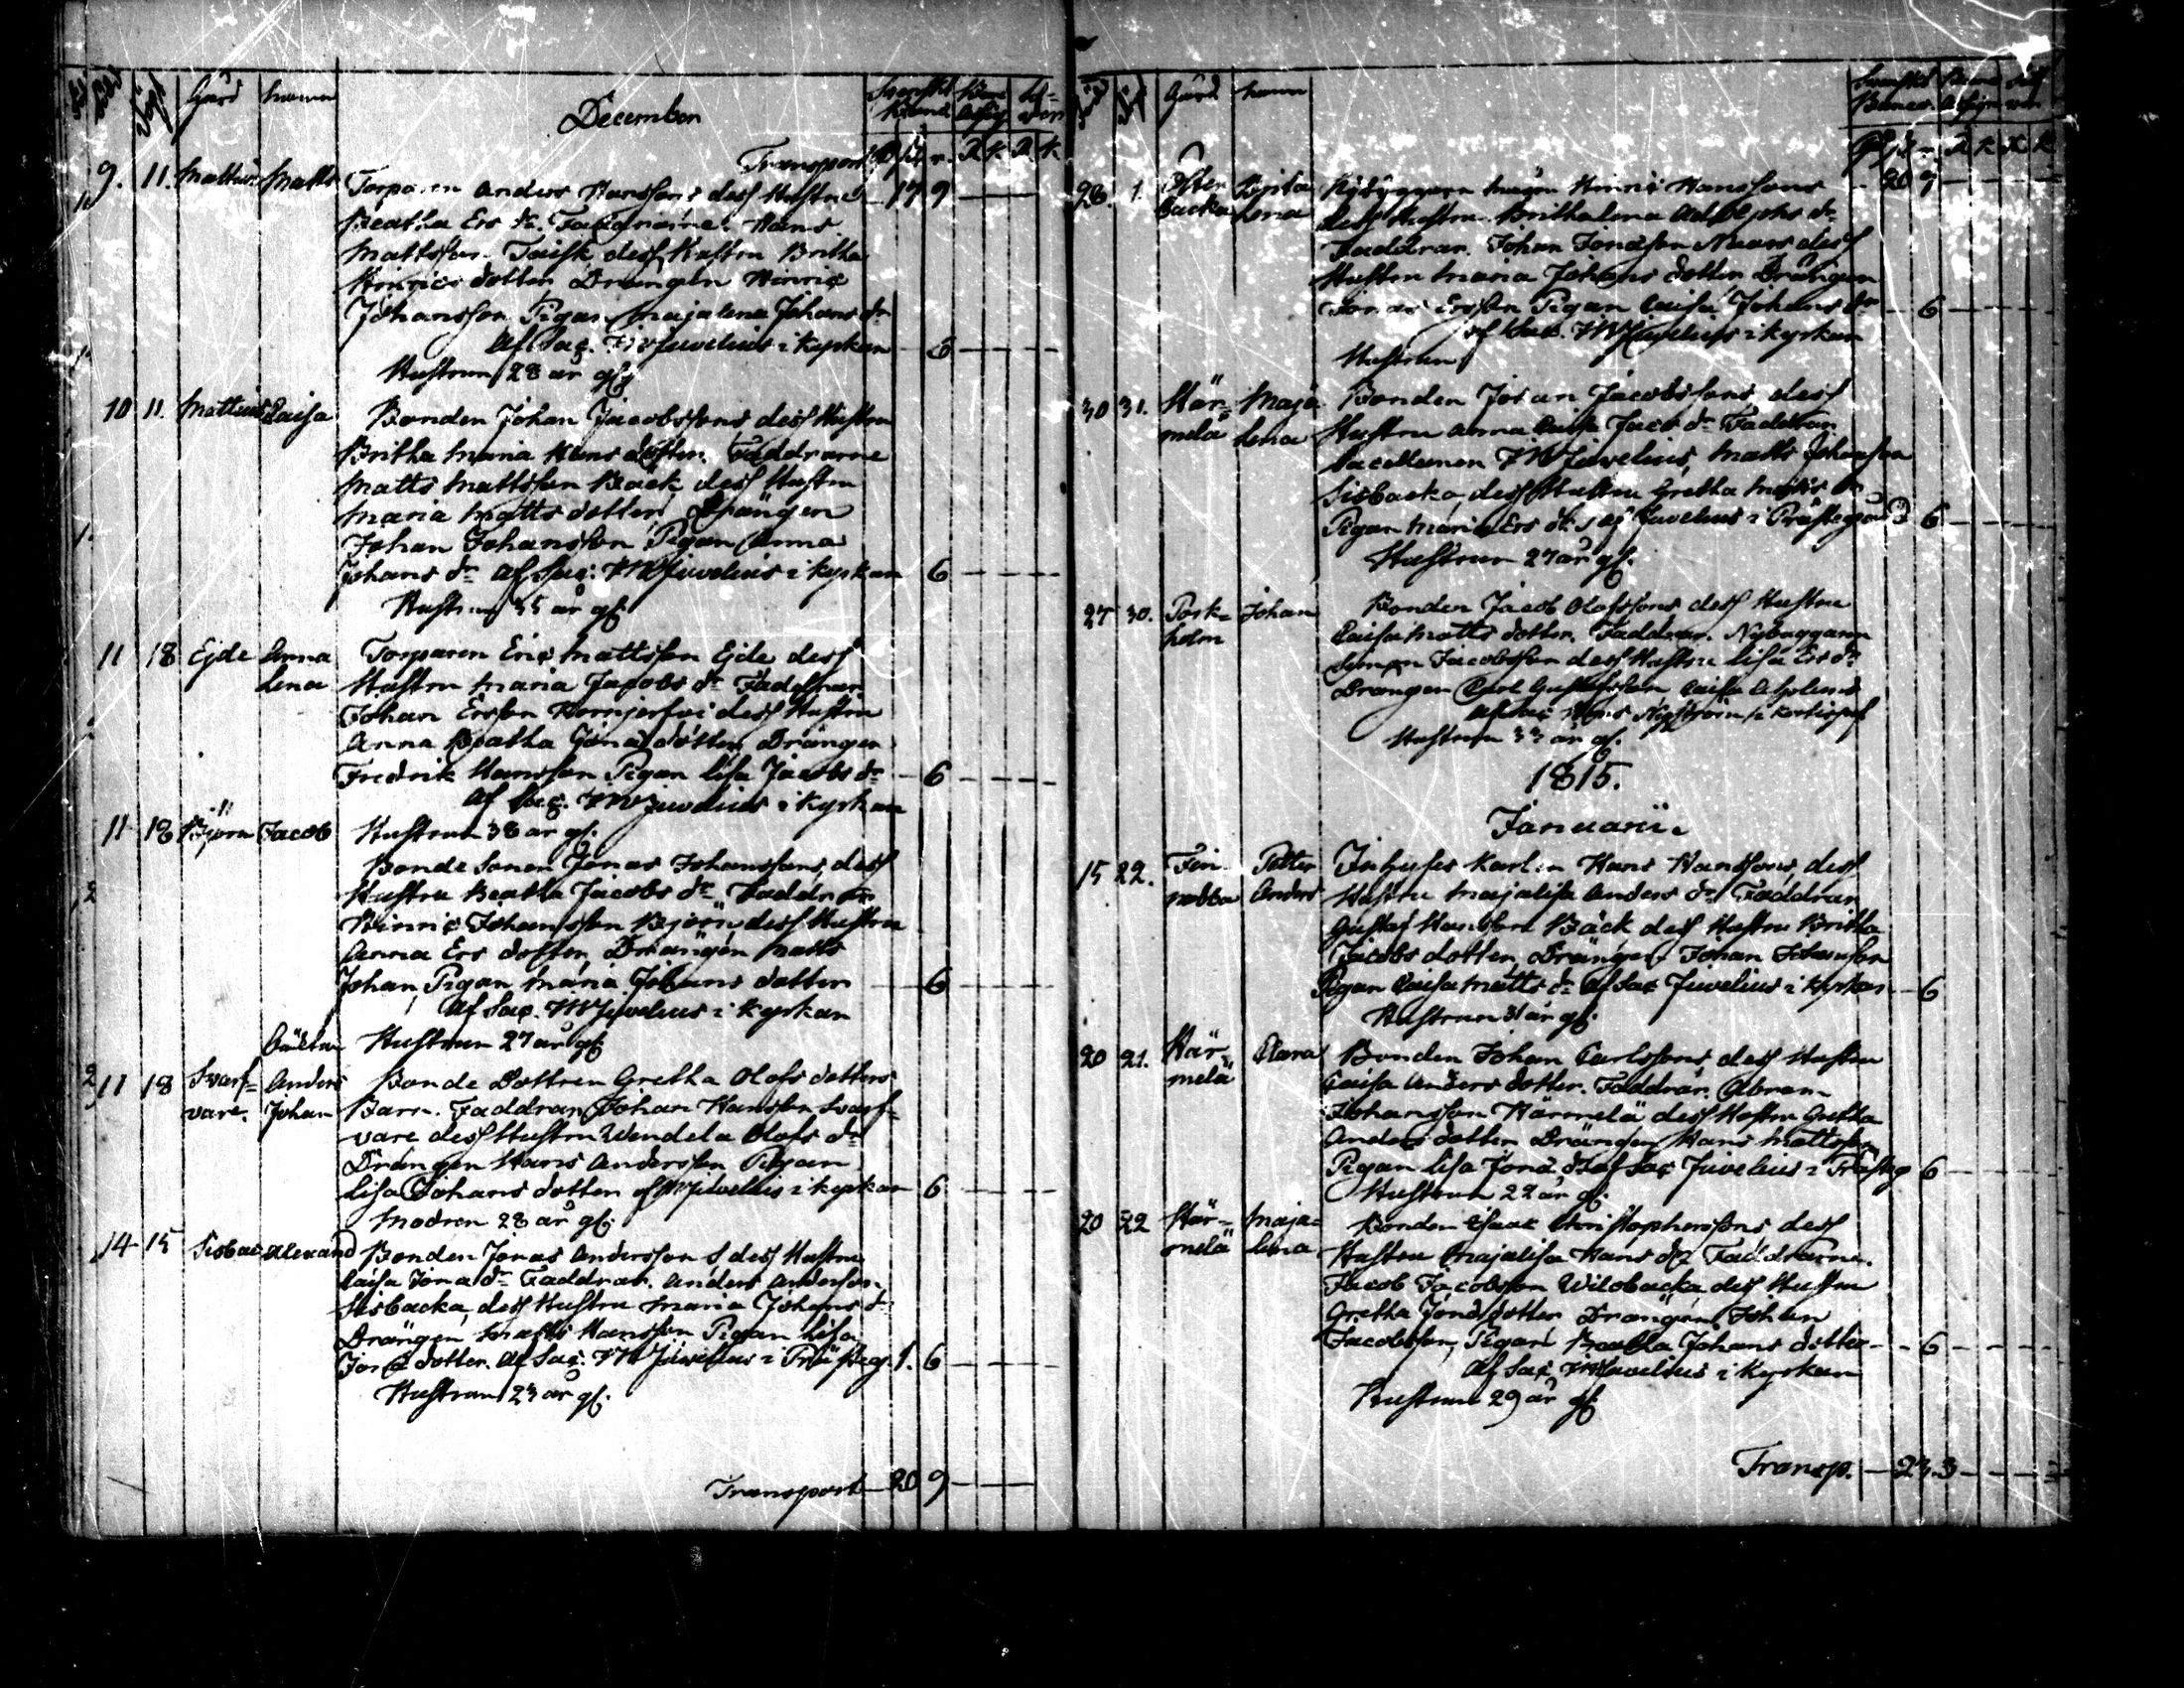 Gård Namn December
Transport
9. 11. Matts Torparen Anders Hanssons dess Hustru 17 9
Beatha Ers dr. Faddrarne. Hans
Mattsson dess Hustru Britha
Hinrics dotter Drängen Hinric
Johansson Pigan Majalena Johans dr
af Sac. Juvelius i Kyrkan 6
Hustrun 28 år gl.
10 11. Caisa Bonden Johan Jacobssons dess Hustru
Britha Maria Hans dotter. Faddrarne
Matts Mattsson Back dess Hustru
Maria Matts dotter Drängen
Johan Johansson Pigan Anna
Johans dr af Sac. Juvelius i Kyrkan 6
Hustrun 35 år gl.
11 18 Ejde Anna Torparen Eric Mattsson Ejde dess
Lena Hustru Maria Jacobs dr Faddrar.
Johan Ersson dess Hustru
Anna Beatha Jona dotter Drängen
Fredrik Hansson Pigan Lisa Jacobs dr 6
af Sac. Juvelius i Kyrkan
11 18 Björn Jacob Hustrun 38 år gl.
Bonde Sonen Jonas Johanssons, dess
Hustru Beatha Jacobs dr Faddrar
Hinric Johansson Björn dess Hustru
Anna Ers dotter, Drängen Matts
Johan, Pigan Maria Johans dotter 6
af Sac. Juvelius i Kyrkan
Oäkta Hustrun 27 år gl.
11 18 Svarf= Anders Bonde Dottren Gretha Olofs dotters
vare. Johan Barn. Faddrar Johan Hansson Svarf=
vare dess Hustru Wendela Olofs dr
Drängen Hans Andersson Pigan
Lisa Johans dotter af Juvelius i kyrkan 6
Modren 28 år gl.
14 15 Sisbac Alexand Bonden Jonas Andersson s dess Hustru
Caisa Jona dr Faddrar. Anders Andersson
Sisbacka, dess Hustru Maria Johans dr
Drängen Matts Hansson Pigan Lisa
Jona dotter. af Sac. Juvelius i Prästeg. 1. 6
Hustrun 23 år gl.
Transport 20 9
Gård Namn
28. 1. Öster Brita Nybyggaren Hinric Hanssons 20 9
backa Lena dess Hustru Brithalena Adolphs dr
Faddrar. Johan Jonasson dess
Hustru Maria Johans dotter Drängen
Jonas Ersson Pigan Caisa Johans dr 6
af Sac. Juvelius i Kyrkan
Hustrun
30 31. Här= Maja Bonden Johan Jacobssons dess
melä Lena Hustru Anna Caisa Jacobs dr Faddrar
Juvelius, Matts Johansson
Sisbacka, dess Hustru Gretha Matts dr
Pigan Maria Ers dr af Juvelius i Prästegård 6
Hustrun 27 år gl.
27 30. Pork= Johan Bonden Jacob Olofssons dess Hustru
holm Caisa Matts dotter. Faddrar. Nybyggaren
Simon Jacobsson dess Hustru Lisa Ers dr
Drängen Carl Gustafsson Caisa
af Sac. Nyström i
Hustrun 33 år gl.
1815.
Januarii.
15 22. Fin= Petter Inhyses Karlen Hans Hanssons, dess
nabba Anders Hustru Majalisa Anders dr Faddrar
Gustaf Hansson Bäck dess Hustru Britha
Jacobs dotter, Drängen Johan Johansson
Pigan Caisa Matts dr af Sac Juvelius i Kyrkan 6
Hustrun 31 år gl.
20 21. Här= Clara Bonden Johan Carlssons dess Hustru
melä Caisa Anders dotter. Faddrar. Abram
Johansson Härmelä dess Hustru Gretha
Anders dotter Drängen Hans Mattsson
Pigan Lisa Jona dr af Sac Juvelius i Prästeg 6
Hustrun 22 år gl.
20 22 Här= Maja= Bonden Isaac Christophersons dess
melä lena Hustru Majalisa Hans dr Faddrarne.
Jacob Jacobsson Wilobacka dess Hustru
Gretha Jona dotter Drängen Johan
Jacobsson, Pigan Beatha Johans dotter 6
af Sac. Juvelius i Kyrkan
Hustrun 29 år gl.
Transp. 23. 3